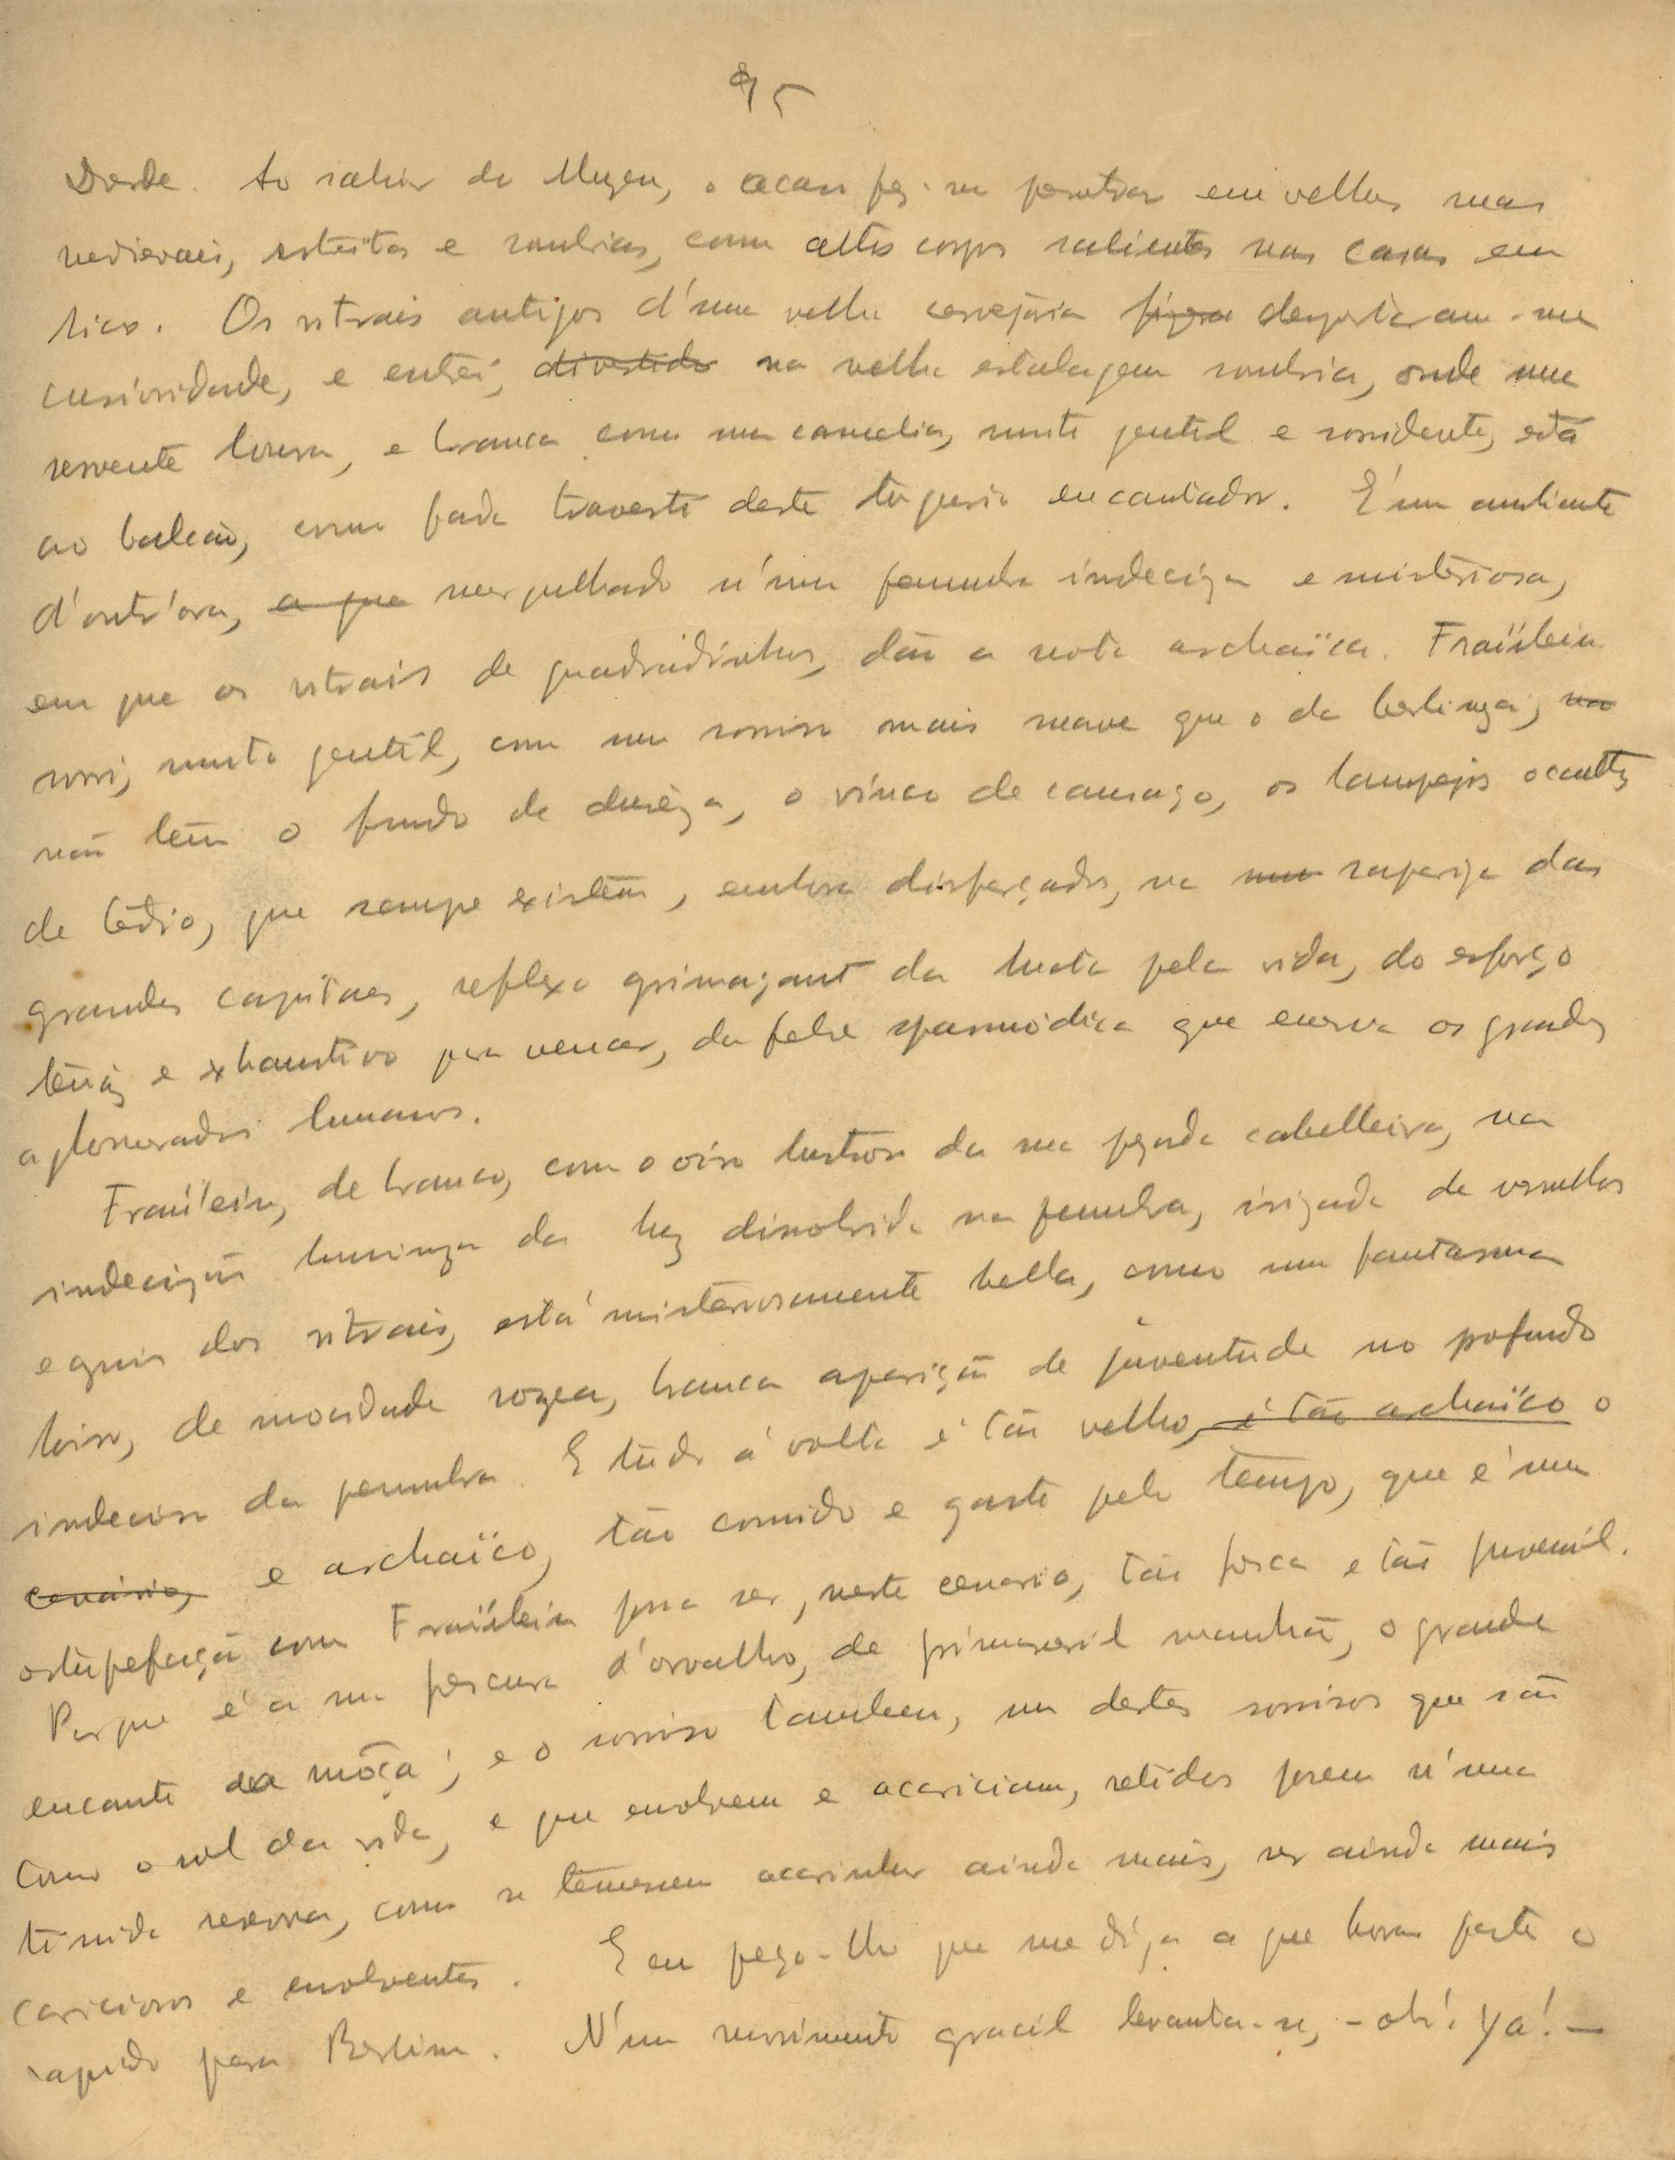 95
Dresde. Ao sahir do Muzeu, o acaso fez-me penetrar em velhas ruas
medievais, estreitas e sombrias, com altos corpos salientes nas casas em
bico. Os vitrais antigos d'uma velha cervejaria fizera despertaram-me
curiosidade, e entrei, divertido na velha estalagem sombria, onde uma
servente loura, e branca como uma camelia, muito gentil e sorridente, está
ao balcão, como fada travesti deste tugurio encantador. É um ambiente
d'outr'ora, a que mergulhado n'uma penumbra indeciza e misteriosa,
em que os vitrais de quadradinhos, dão a nota archaïca. Fraülein
sorri, muito gentil, com um sorriso mais suave que o da berlineza; no
não tem o fundo de dureza, o vinco de cansaço, os lampejos occultos
de tédio, que sempre existem, embora disfarçados, na rapariga das
grandes capitaes, reflexo grimaçant da lucta pela vida, do esforço
tenáz e exhaustivo para vencer, da febre spasmódica que enerva os grandes
aglomerados humanos.
Fraülein, de branco, com o oiro lustroso da sua pezada cabelleira, na
indecizão luminoza da luz dissolvida na penumbra, irizada de vermelhos
e azuis dos vitrais, está misteriosamente bella, como um fantasma
loiro, de mocidade rozea, branca aparição de juventude no profundo
indeciso da penumbra. E tudo á volta é tão velho, é tão archaïco o
cenário, e archaïco, tão comido e gasto pelo tempo, que é uma
estupefação como Fraülein possa ser, neste cenario, tão fresca e tão juvenil.
Porque é a sua frescura d'orvalho, de primaveril manhã, o grande
encanto da môça; e o sorriso tambem, um destes sorrisos que são
como o sol da vida, e que envolvem e acariciam, retidos porem n'uma
timida reserva, como se temessem acarinhar ainda mais, ser ainda mais
cariciosos e envolventes. E eu peço-lhe que me diga a que horas parte o
rapido para Berlim. N'um movimento gracil levanta-se, - oh! ya! -